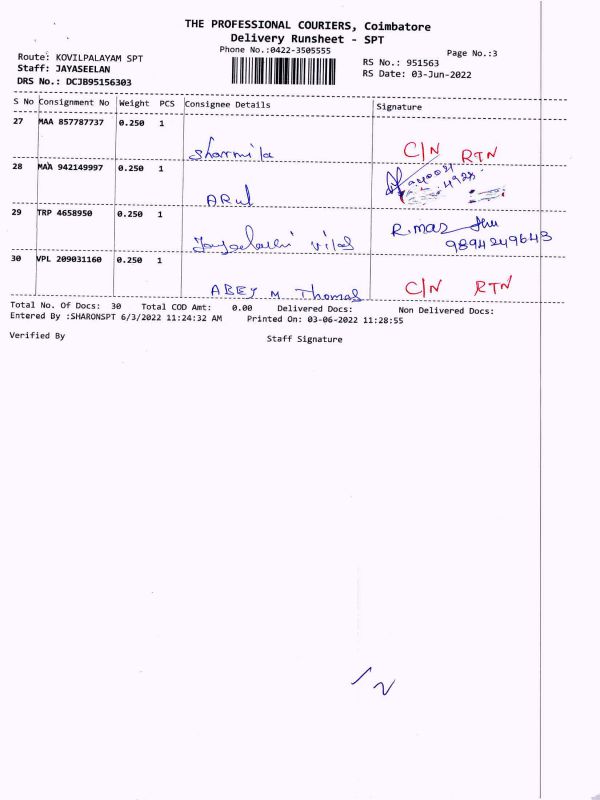 THE PROFESSIONAL COURIERS, Coimbatore
Delivery Runsheet - SPT
Phone No.:0422-3505555
Page No.:3
Route: KOVILPALAYAM SPT
RS No.: 951563
Staff: JAYASEELAN
RS Date: 03-Jun-2022
DRS No.: DCJB95156303
S No Consignment No Weight PCS Consignee Details Signature
27 MAA 857787737 0.250 1
Sharmila C/N RTN
28 MAA 942149997 0.250 1
ARUL
29 TRP 4658950 0.250 1
vilas R.maz
9894249643
30 VPL 209031160 0.250 1
ABEY M Thomas C/N RTN
Total No. Of Docs: 30 Total COD Amt: 0.00 Delivered Docs: Non Delivered Docs:
Entered By :SHARONSPT 6/3/2022 11:24:32 AM Printed On: 03-06-2022 11:28:55
Verified By Staff Signature